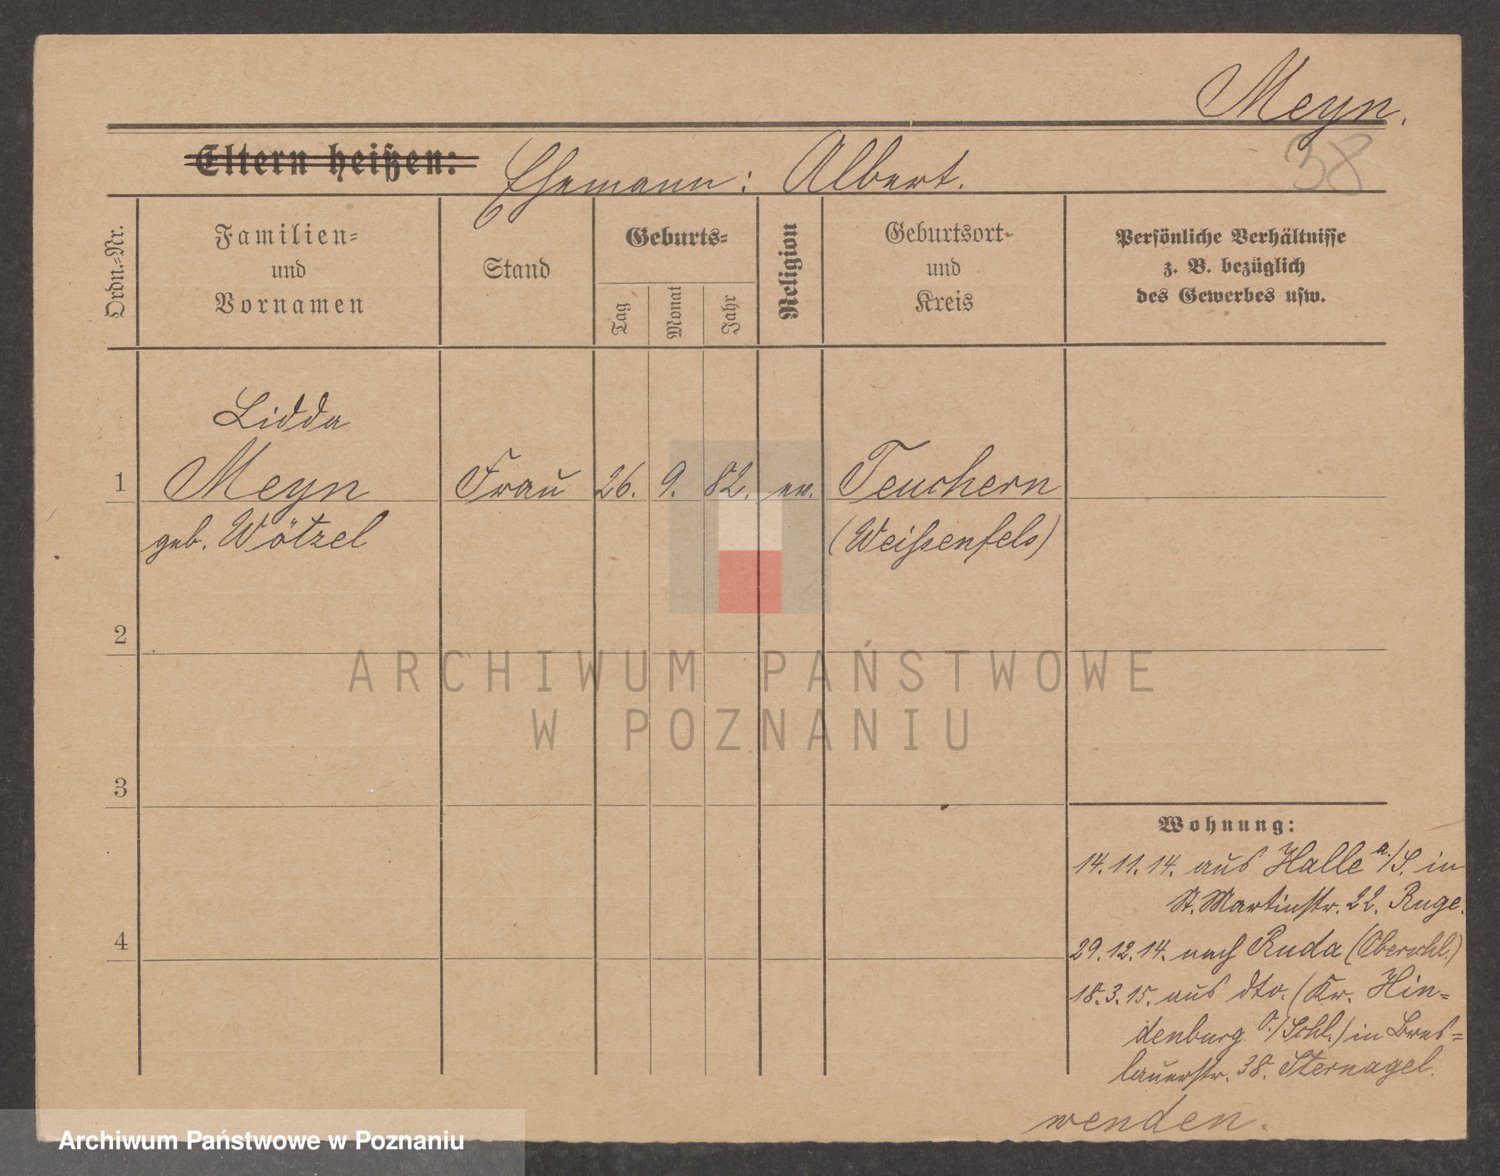 Meyn.
38
Eltern heißen: Ehemann: Albert.
Ordn.-Nr.
Familien-
und
Vornamen
Stand
Geburts-
Tag
Monat
Jahr
Religion
Geburtsort-
und
Kreis
Persönliche Verhältnisse
z. B. bezüglich
des Gewerbes usw.
Lidda
1 Meyn Frau 26. 9. 82. ev. Teuchern
geb. Wötzel (Weißenfels)
2
ARCHIWUM PAŃSTWOWE
W POZNANIU
3
Wohnung:
14.11.14. aus Halle a./S. in
St. Martinstr. 22. Ruge.
4
29.12.14. nach Ruda (Oberschl.)
18.3.15. aus dto. (Kr. Hin-
denburg O./Schl.) in Bres-
lauerstr. 38. Sternagel.
wenden.
Archiwum Państwowe w Poznaniu